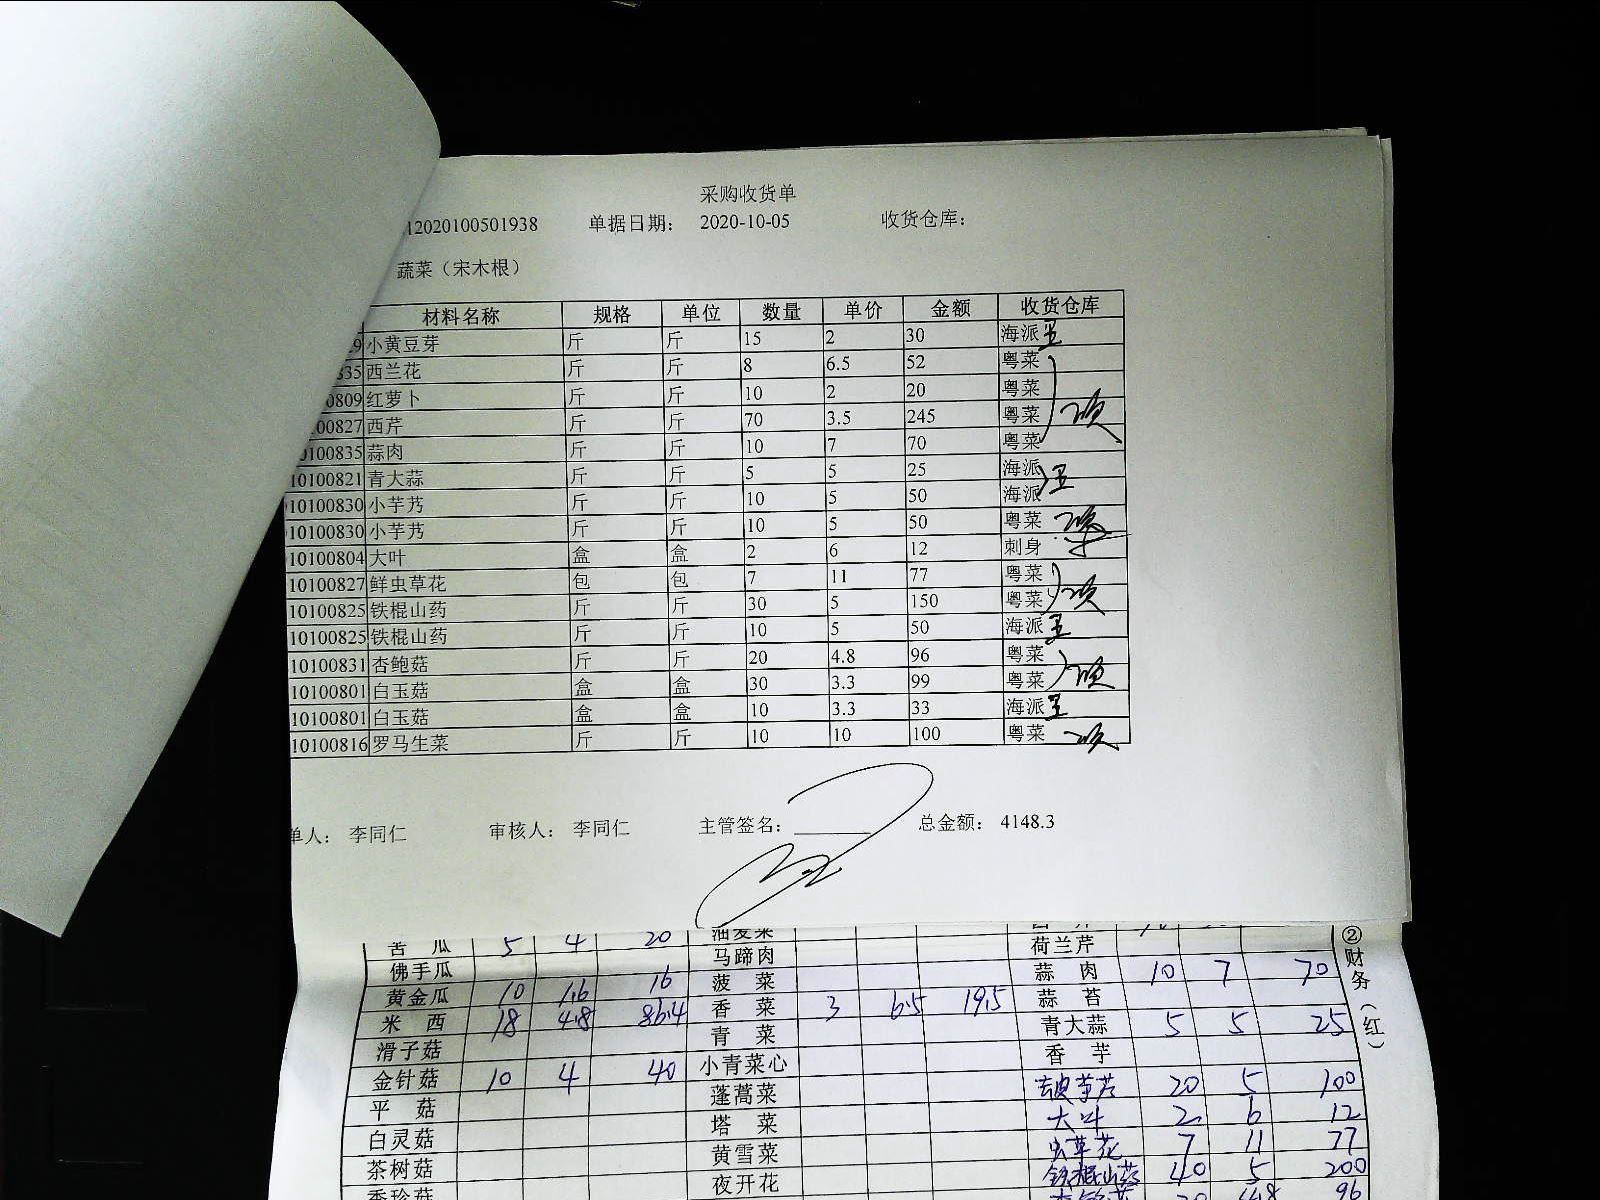 采购收货单
12020100501938 单据日期： 2020-10-05 收货仓库：
蔬菜（宋木根）
材料名称 规格 单位 数量 单价 金额 收货仓库
9 小黄豆芽 斤 斤 15 2 30 海派 王
835 西兰花 斤 斤 8 6.5 52 粤菜
0809 红萝卜 斤 斤 10 2 20 粤菜
00827 西芹 斤 斤 70 3.5 245 粤菜
0100835 蒜肉 斤 斤 10 7 70 粤菜
10100821 青大蒜 斤 斤 5 5 25 海派
10100830 小芋艿 斤 斤 10 5 50 海派 王
10100830 小芋艿 斤 斤 10 5 50 粤菜
10100804 大叶 盒 盒 2 6 12 刺身
10100827 鲜虫草花 包 包 7 11 77 粤菜
10100825 铁棍山药 斤 斤 30 5 150 粤菜
10100825 铁棍山药 斤 斤 10 5 50 海派 王
10100831 杏鲍菇 斤 斤 20 4.8 96 粤菜
10100801 白玉菇 盒 盒 30 3.3 99 粤菜
10100801 白玉菇 盒 盒 10 3.3 33 海派 王
10100816 罗马生菜 斤 斤 10 10 100 粤菜
单人： 李同仁 审核人： 李同仁 主管签名： 总金额： 4148.3
苦瓜 5 4 20 油麦菜
佛手瓜 马蹄肉 荷兰芹
黄金瓜 10 1.6 16 菠菜 蒜肉 10 7 70
米西 18 4.8 86.4 香菜 3 6.5 19.5 蒜苔
滑子菇 青菜 青大蒜 5 5 25
金针菇 10 4 40 小青菜心 香芋
平菇 蓬蒿菜 20 5 100
白灵菇 塔菜 大叶 2 6 12
茶树菇 黄雪菜 虫草花 7 11 77
夜开花 铁棍山药 40 5 200
96
②财务（红）